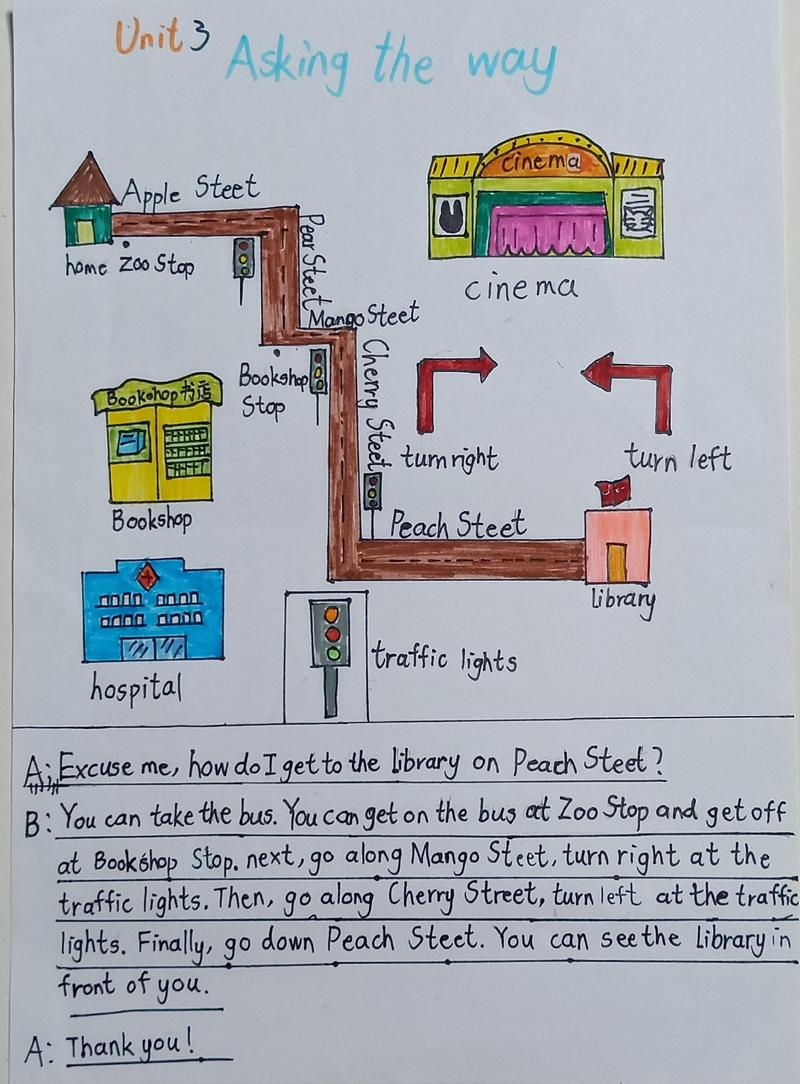 Unit 3 Asking the way
cinema
Apple Steet
home Zoo Stop
Pear Steet
cinema
Mango Steet
Bookshop
Stop
Cherry Steet
Bookshop书店
turn right
turn left
Bookshop
Peach Steet
library
hospital
traffic lights
A: Excuse me, how do I get to the library on Peach Steet?
B: You can take the bus. You can get on the bus at Zoo Stop and get off
at Bookshop Stop. next, go along Mango Steet, turn right at the
traffic lights. Then, go along Cherry Street, turn left at the traffic
lights. Finally, go down Peach Steet. You can see the library in
front of you.
A: Thank you!